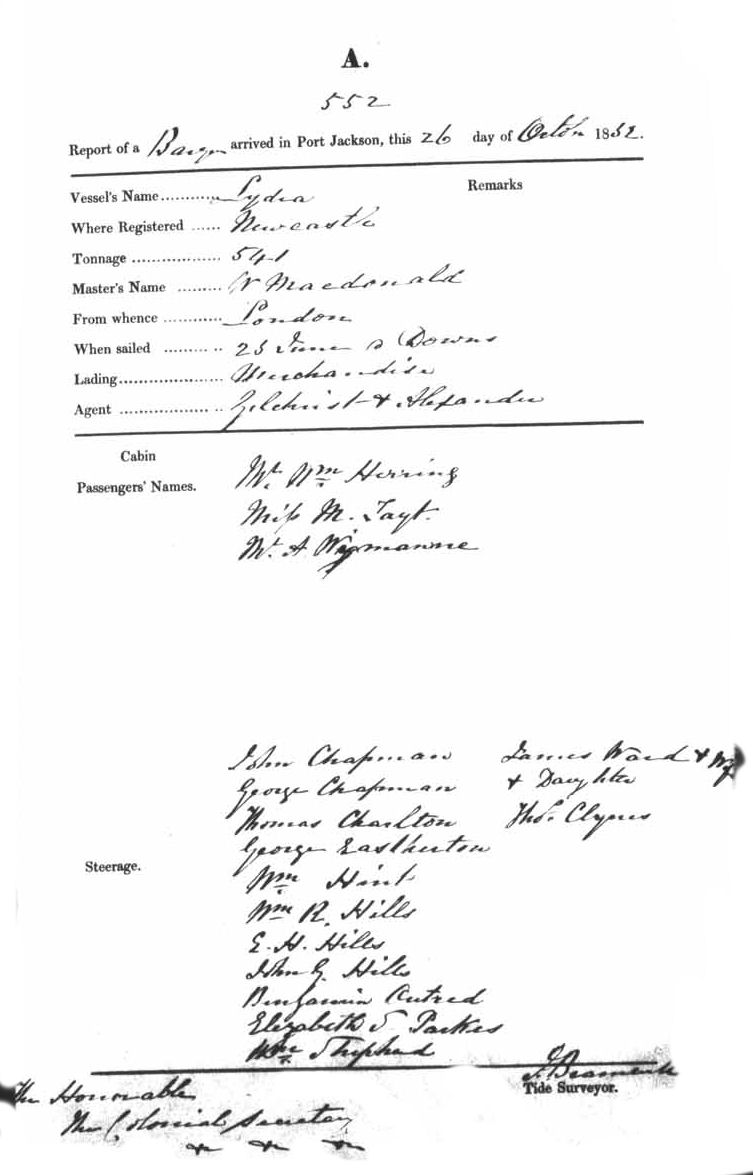 A.
552
Report of a Barque arrived in Port Jackson, this 26 day of Octbr 1852.
Remarks
Vessel's Name Lydia
Where Registered Newcastle
Tonnage 541
Master's Name W Macdonald
From whence London
When sailed 25 June Downs
Lading Merchandise
Agent Gilchrist & Alexander
Cabin
Passengers' Names.
Mr. Wm Herring
Miss M. Tayt.
Mr. A. Wigmanne
Steerage.
John Chapman James Ward & Wf
George Chapman & Daughter
Thomas Charlton Thos. Clynes
George Eastherton
Wm Hint
Wm R. Hills
E. H. Hills
John G. Hills
Benjamin Outred
Elizabeth S Parkes
Wm Shephed
Tide Surveyor.
The Honorable
The Colonial Secretary